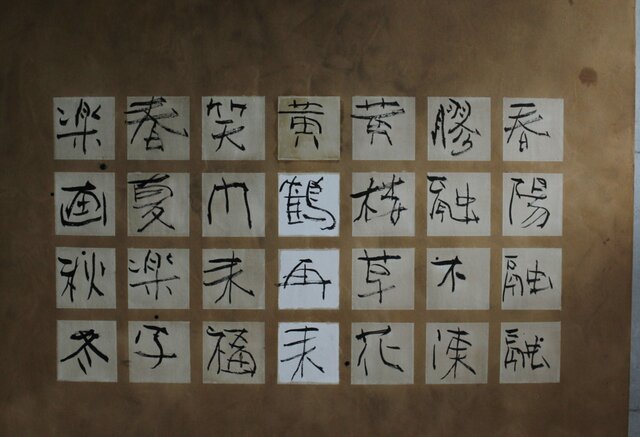 春陽融融
膠融不凍
黄草花
黄鶴再来
笑門来福
春夏楽字
楽画秋冬